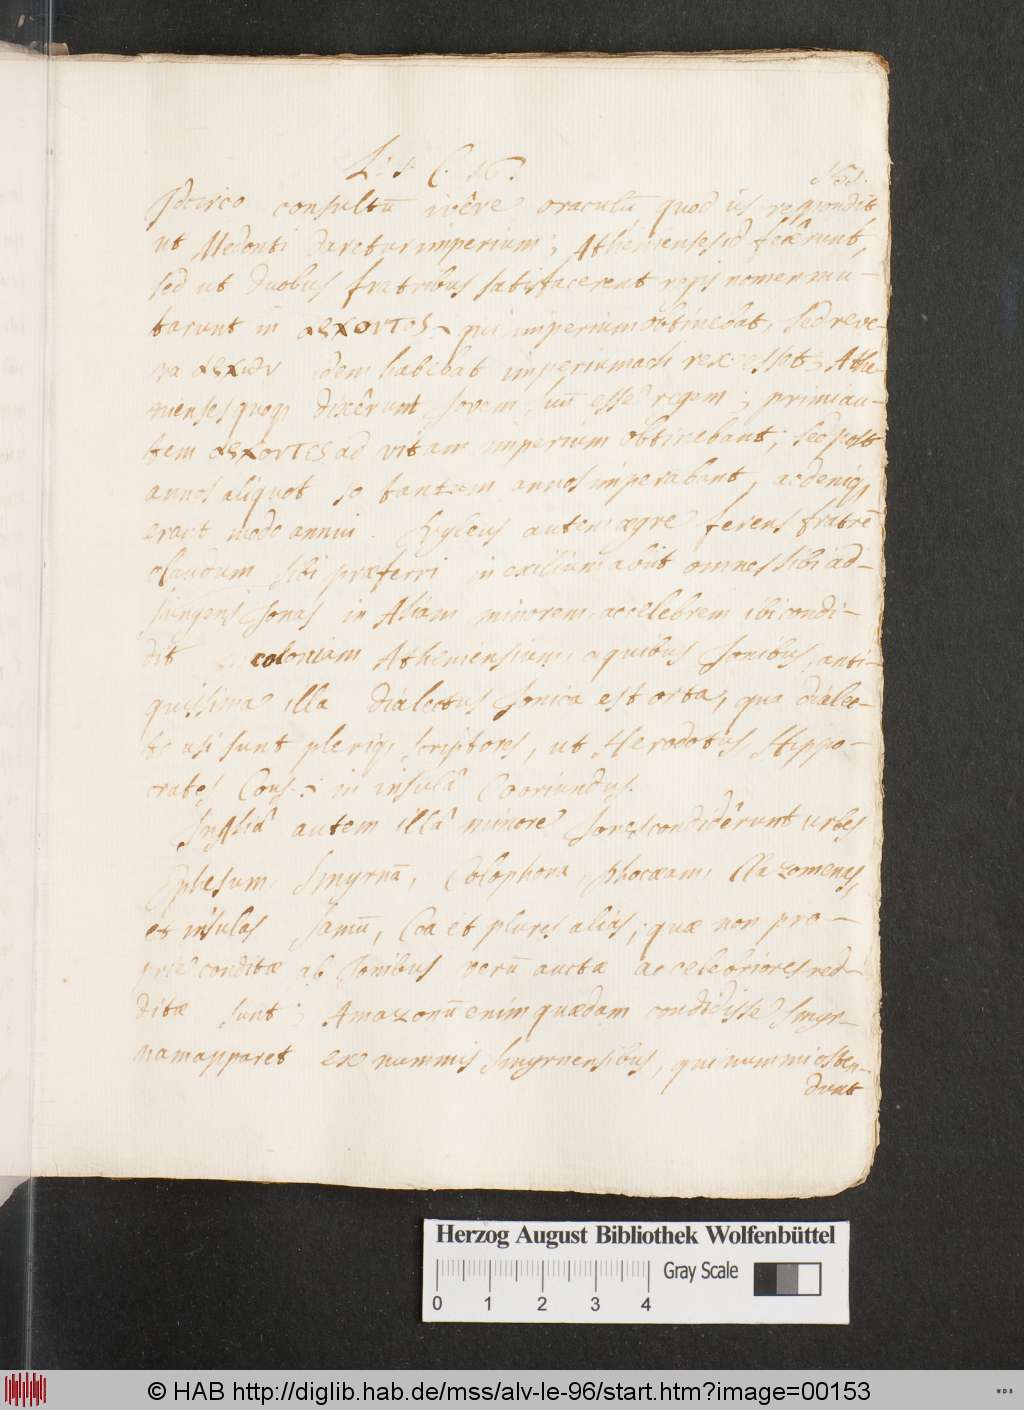 L. 1. C. 16.
Idcirco consultū ivêre oraculū, quod iis respondit
ut Medonti daretur imperium; Athenienses id fecêrunt,
sed ut duobus fratribus satisfacerent regis nomen mu-
tarunt in αρχοντος, qui imperium obtinebat, sed reve-
ra αρχων idem habebat imperium ac si rex esset; Athe-
nienses quoq; dixêrunt Jovem suū esse regem; primi au-
tem αρχοντες ad vitam imperium obtinebant; sed post
annos aliquot 10 tantum annos imperabant, ac deniq;
erant modo annui. Nyleus autem ægre ferens fratrē
claudum sibi præferri in exilium abiit omnes sibi ad-
jungens Jonas in Asiam minorem, ac celebrem ibi condi-
dit coloniam Atheniensium, a quibus Jonibus, anti-
quissima illa dialectus Jonica est orta, qua dialec-
to usi sunt pleriq; scriptores, ut Herodotus, Hippo-
crates Cous, in insulâ Co oriundus.
In Asiâ autem illâ minore Jones condidêrunt urbes
Ephesum, Smyrnā, Colophona, Phocæam, Clazomenas,
et insulas Samū, Coa et plures alias; quæ non pro-
prie conditæ ab Jonibus verū auctæ ac celebriores red-
ditæ sunt; Amazonū enim quædam condidisse Smyr-
nam apparet ex nummis Smyrnensibus, qui nummi osten-
dunt
Herzog August Bibliothek Wolfenbüttel
Gray Scale
0 1 2 3 4
© HAB http://diglib.hab.de/mss/alv-le-96/start.htm?image=00153